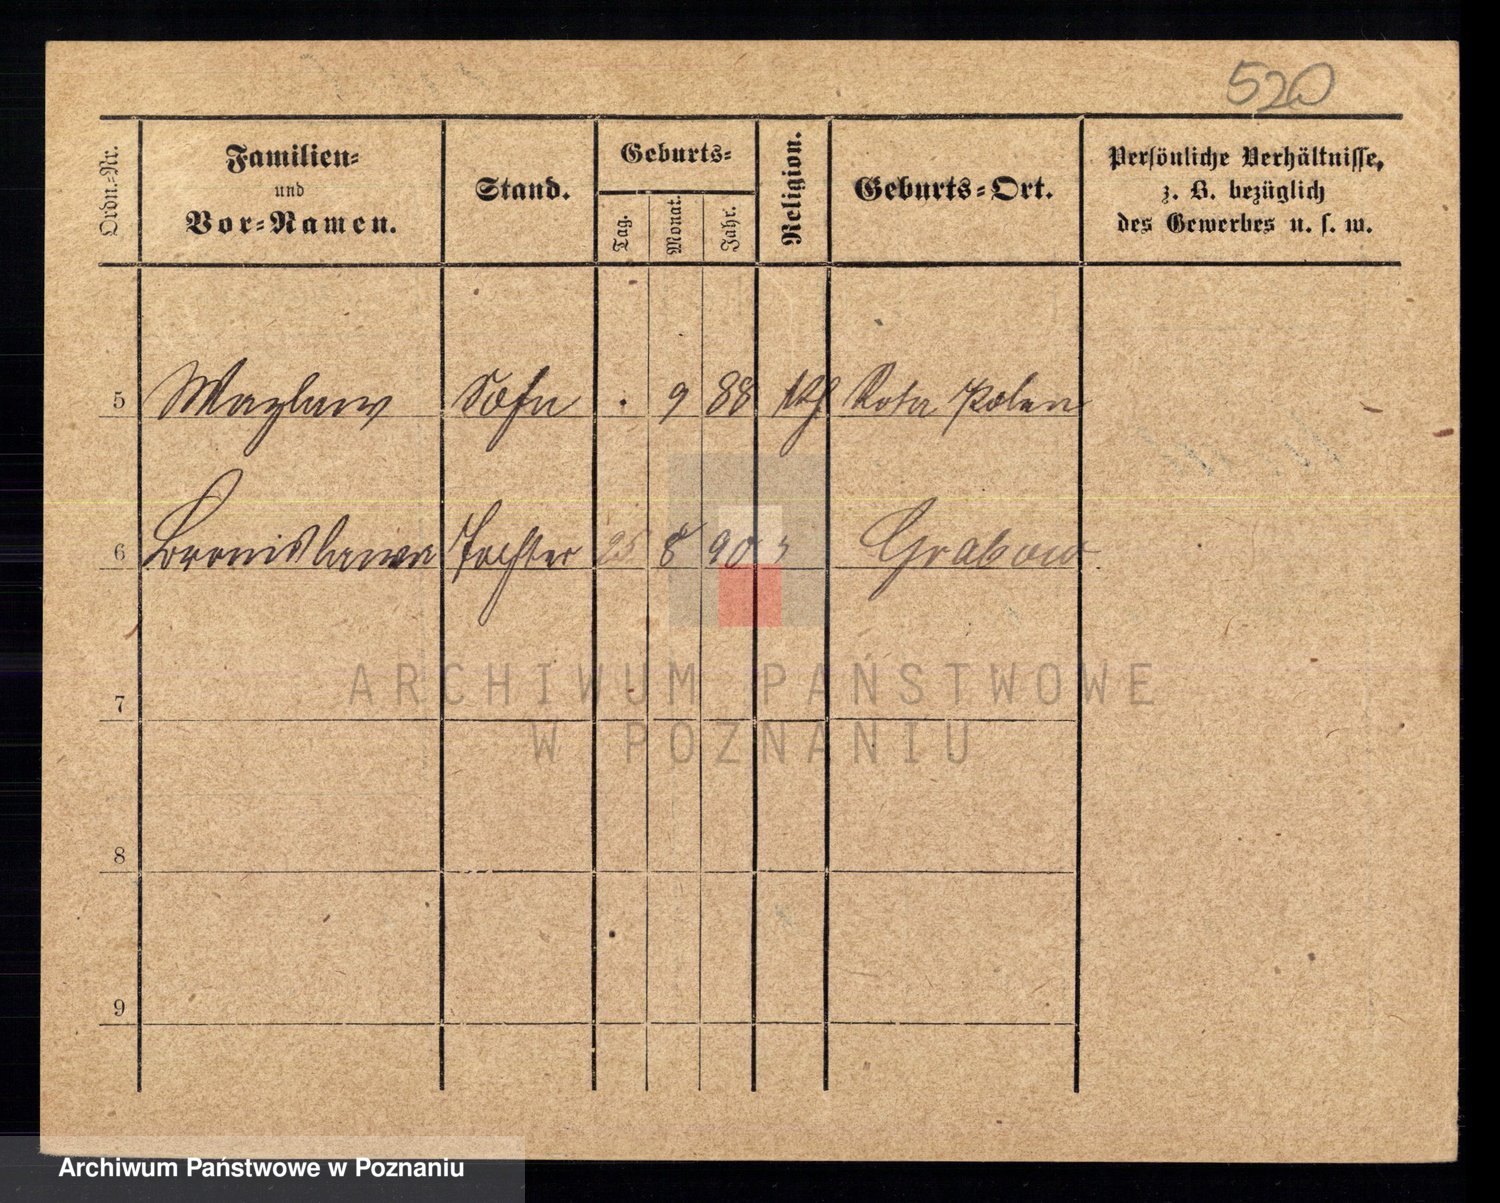 520
Ordn.-Nr.
Familien-
und
Vor-Namen.
Stand.
Geburts-
Tag.
Monat.
Jahr.
Religion.
Geburts-Ort.
Persönliche Verhältnisse,
z. B. bezüglich
des Gewerbes u. s. w.
5 Wazlaw Sohn . 9 88 Kath Polen
6 Bronislawa Tochter 25 8 90 " Grabow
7
8
9
ARCHIWUM PAŃSTWOWE
W POZNANIU
Archiwum Państwowe w Poznaniu